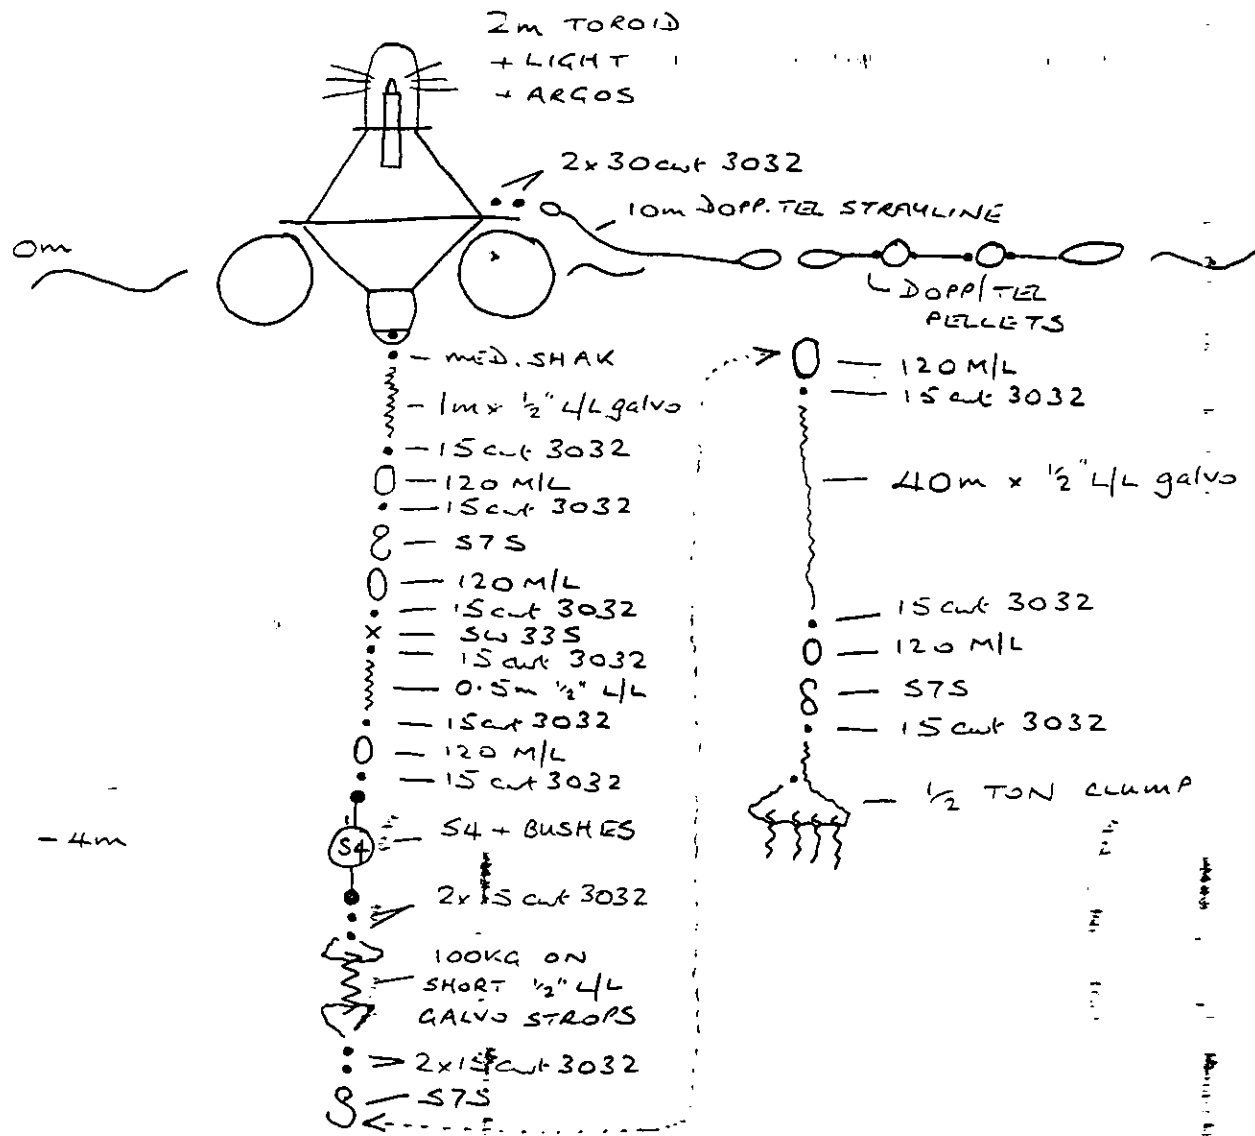 2m TOROID
+ LIGHT
+ ARGOS
2x30cwt 3032
10m DOPP.TEL STRAYLINE
0m
DOPP/TEL
PELLETS
MED. SHAK
1m x 1/2" L/L galvo
15cwt 3032
120 M/L
15cwt 3032
S7S
120 M/L
15cwt 3032
SW 33S
15cwt 3032
0.5m 1/2" L/L
15cwt 3032
120 M/L
15cwt 3032
S4 + BUSHES
S4
- 4m
2x15cwt 3032
100KG ON
SHORT 1/2" L/L
GALVO STROPS
2x15cwt 3032
S7S
120 M/L
15cwt 3032
40m x 1/2" L/L galvo
15cwt 3032
120 M/L
S7S
15cwt 3032
1/2 TON CLUMP